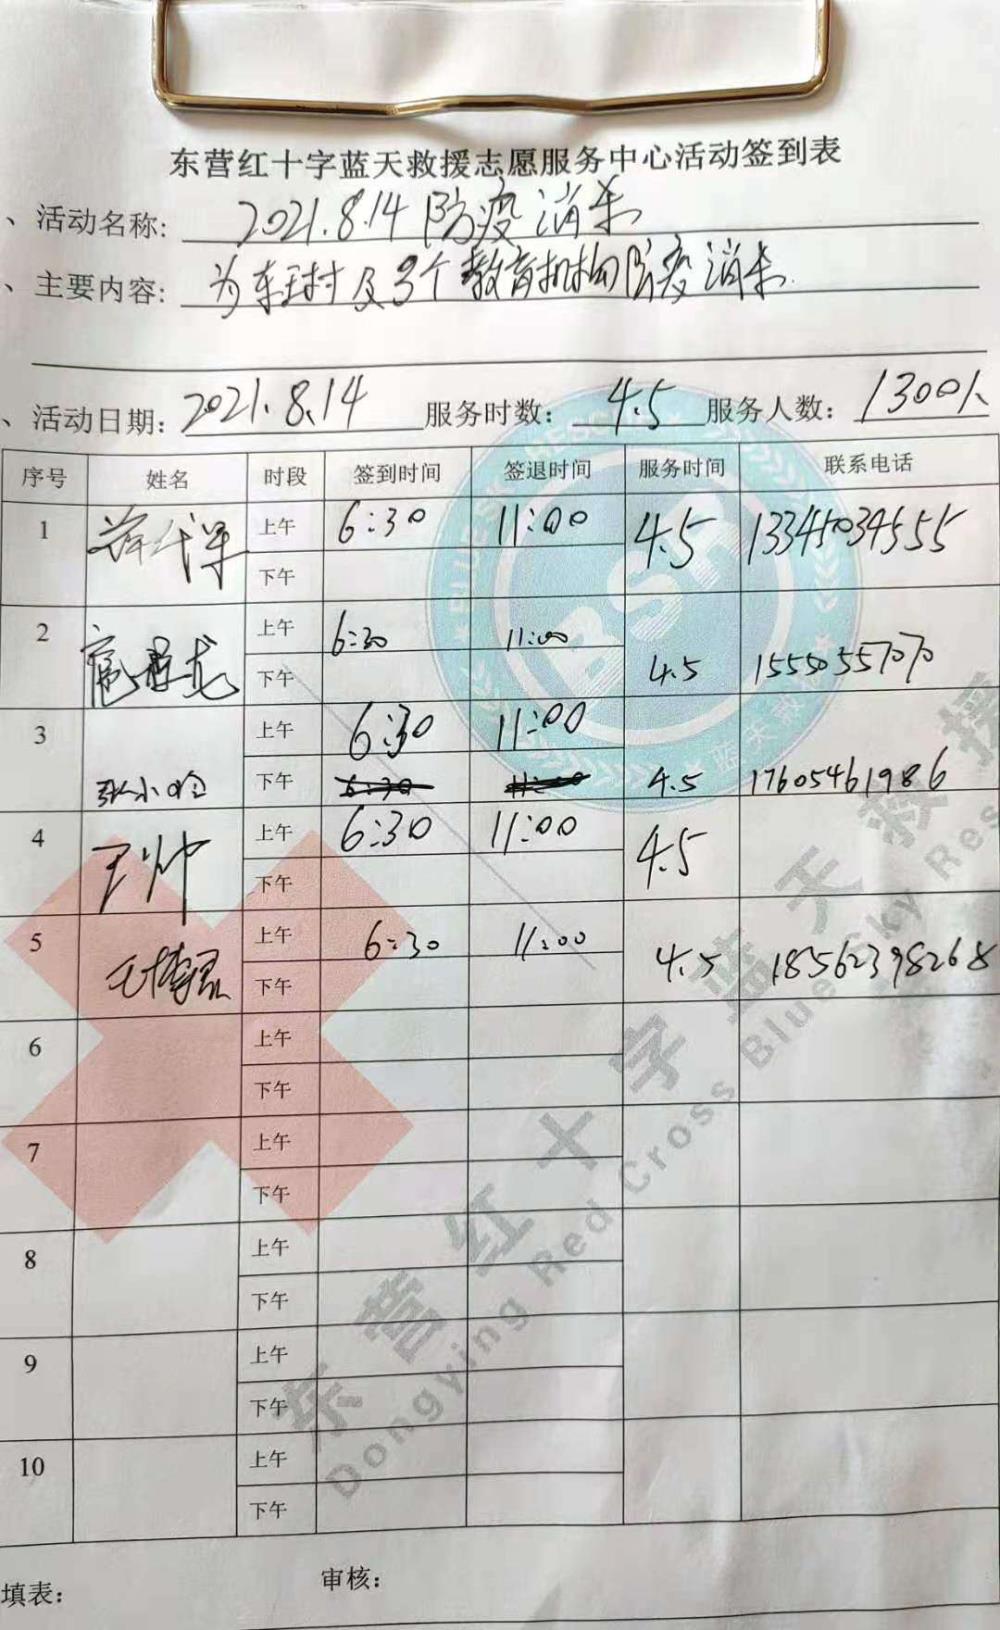 东营红十字蓝天救援志愿服务中心活动签到表
、活动名称: 2021.8.14 防疫消杀
、主要内容: 为车王村及3个教育机构防疫消杀.
、活动日期: 2021.8.14 服务时数: 4.5 服务人数: 1300人
序号 姓名 时段 签到时间 签退时间 服务时间 联系电话
1 上午 6:30 11:00 4.5
下午
2 上午 6:30 11:00
下午 4.5 15550557070
3 上午 6:30 11:00
张小 下午 4.5 17605461986
4 王帅 上午 6:30 11:00 4.5
下午
5 上午 6:30 11:00 4.5 18562398268
下午
6 上午
下午
7 上午
下午
8 上午
下午
9 上午
下午
10 上午
下午
填表: 审核:
BLUE SKY RESCUE
BSR
蓝天救援
东营红十字蓝天救援
Dongying Red Cross Blue Sky Res